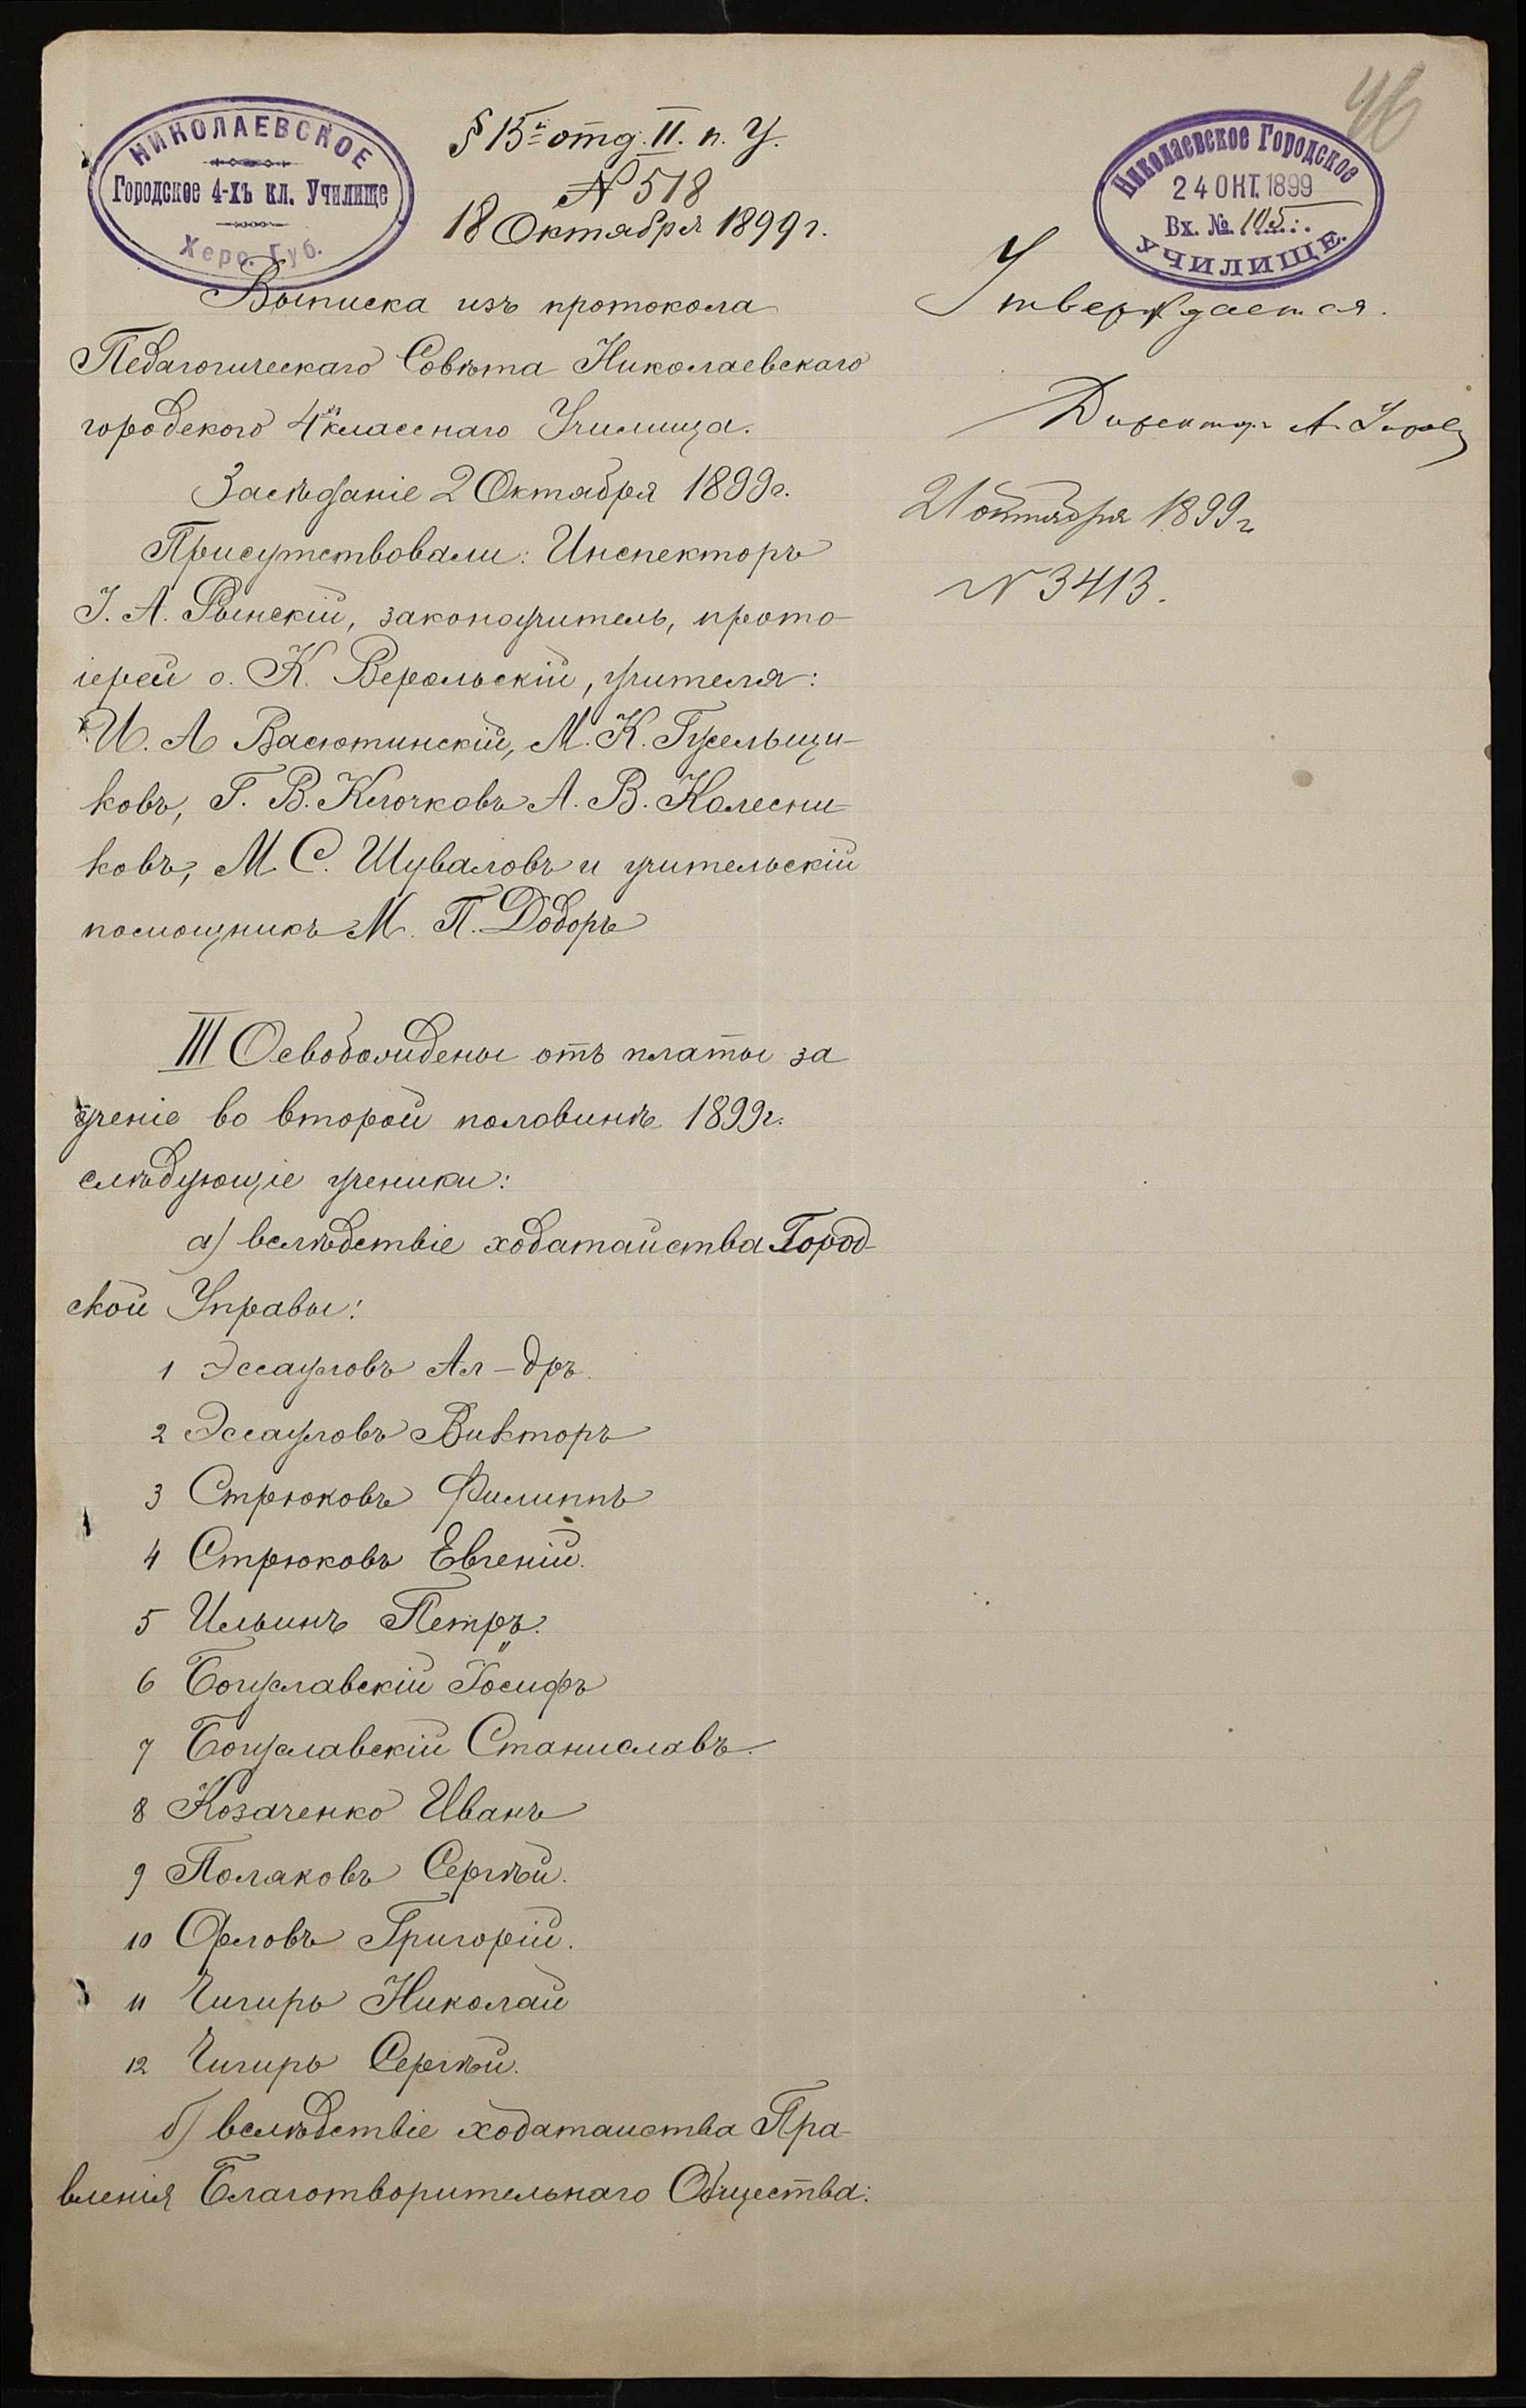 46
НИКОЛАЕВСКОЕ
Городское 4-хъ кл. Училище
Херс. Губ.
§ 15й отд. II. п. У.
№ 518
18 Октября 1899 г.
Николаевское Городское
24 ОКТ. 1899
Вх. №
УЧИЛИЩЕ.
Выписка изъ протокола
Педагогическаго Совѣта Николаевскаго
городского 4хъ класснаго Училища.
Засѣданіе 2 Октября 1899г.
Присутствовали: Инспекторъ
І. А. Рынскій, законоучитель, прото-
іерей о. К. Верольскій, учителя:
И. А Васютинскій, М. К. Гусельщи-
ковъ, Г. В. Клочковъ А. В. Колесни-
ковъ, М. С. Шуваловъ и учительскій
помощникъ М. П. Доборъ
III Освобождены отъ платы за
ученіе во второй половинѣ 1899г.
слѣдующіе ученики:
а) вслѣдствіе ходатайства Город-
ской Управы:
1 Эссауловъ Ал-дръ.
2 Эссауловъ Викторъ
3 Стрюковъ Филиппъ
4 Стрюковъ Евгеній.
5 Ильинъ Петръ.
6 Богуславскій Іосифъ
7 Богуславскій Станиславъ.
8 Козаченко Иванъ
9 Полаковъ Сергѣй.
10 Орловъ Григорій.
11 Чигирь Николай
12 Чигирь Сергѣй.
б) вслѣдствіе ходатайства Пра-
вленія Благотворительнаго Общества:
Утверждается.
Директоръ А.
21 октября 1899 г
№ 3413.